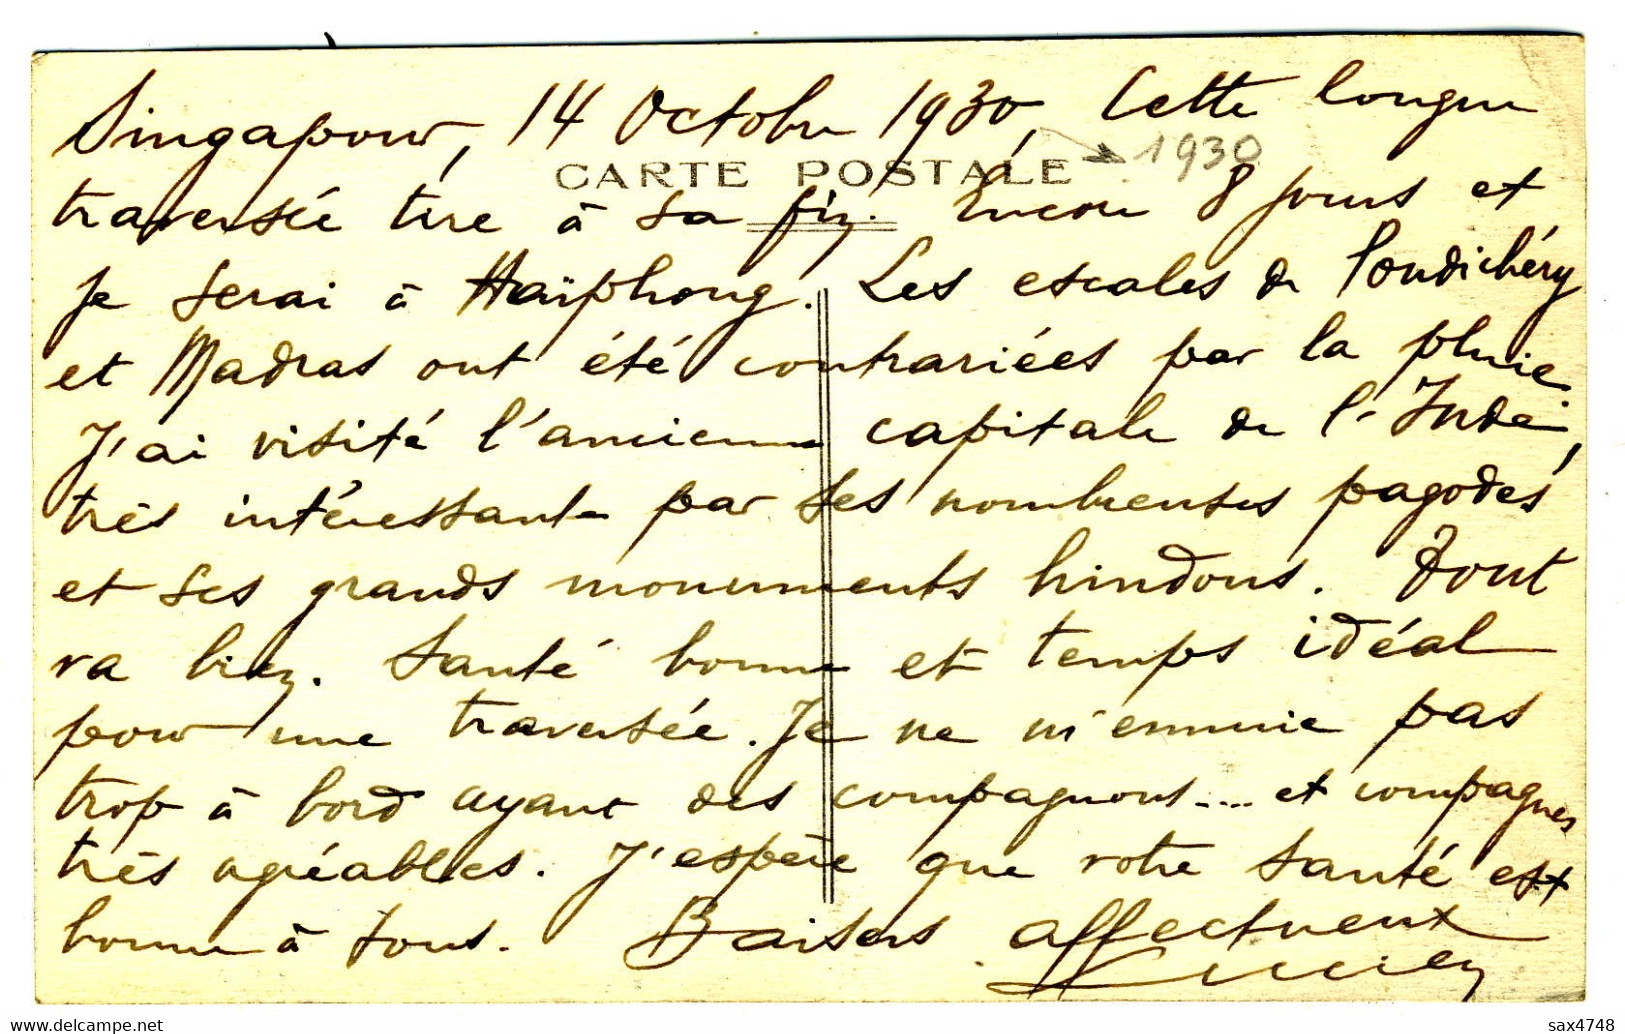 Singapour, 14 Octobre 1930, Cette longue
CARTE POSTALE
1930
traversée tire à sa fin. Encore 8 jours et
je serai à Haïphong. Les escales de Pondichéry
et Madras ont été contrariées par la pluie.
J'ai visité l'ancienne capitale de l'Inde,
très intéressante par ses nombreuses pagodes
et ses grands monuments hindous. Tout
va bien. Santé bonne et temps idéal
pour une traversée. Je ne m'ennuie pas
trop à bord ayant des compagnons.... et compagnes
très agréables. J'espère que votre santé est
bonne à tous. Baisers affectueux
Lucien
sax4748